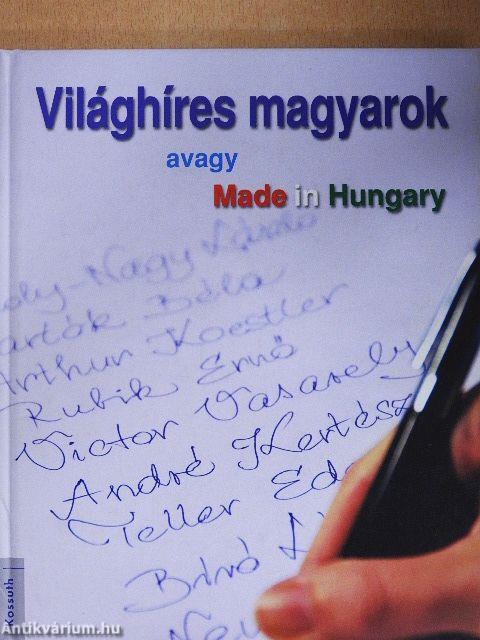 Világhíres magyarok
avagy
Made in Hungary
oly-Nagy László
artók Béla
Arthur Koestler
Rubik Ernő
Victor Vasarely
André Kertész
Teller Ede
Bíró L
Ne
Kossuth
Antikvárium.hu